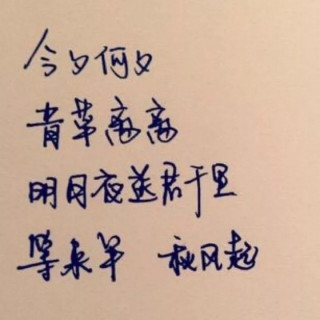 今夕何夕
青草离离
明月夜送君千里
等来年 秋风起